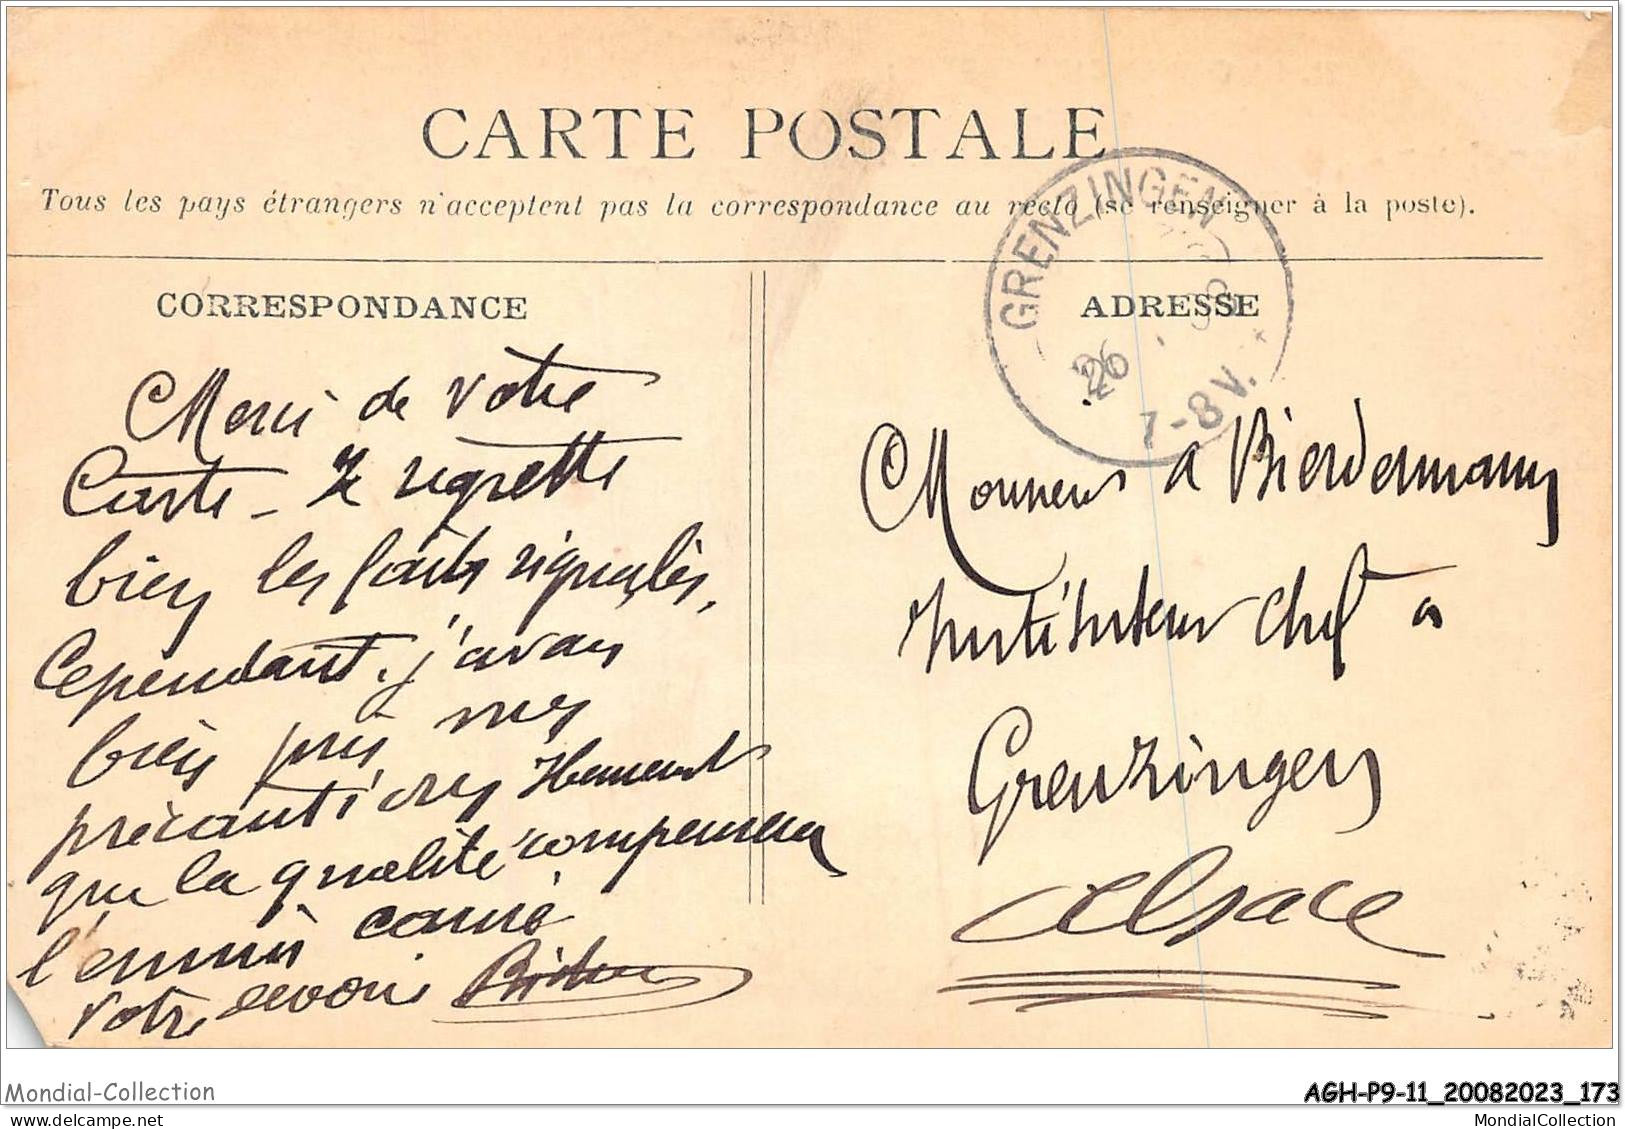 CARTE POSTALE
Tous les pays étrangers n'acceptent pas la correspondance au recto (se renseigner à la poste).
GRENZINGEN
26
7-8V.
CORRESPONDANCE
Merci de votre
Carte - Je regrette
bien les faits signalés,
Cependant. j'avais
bien pris mes
précautions
que la qualité compensera
l'ennui causé
Votre dévoué
ADRESSE
Monsieur A Bierdermann
Instituteur Chef à
Grenzingen
Alsace
Mondial-Collection
AGH-P9-11_20082023_173
delcampe.net
MondialCollection